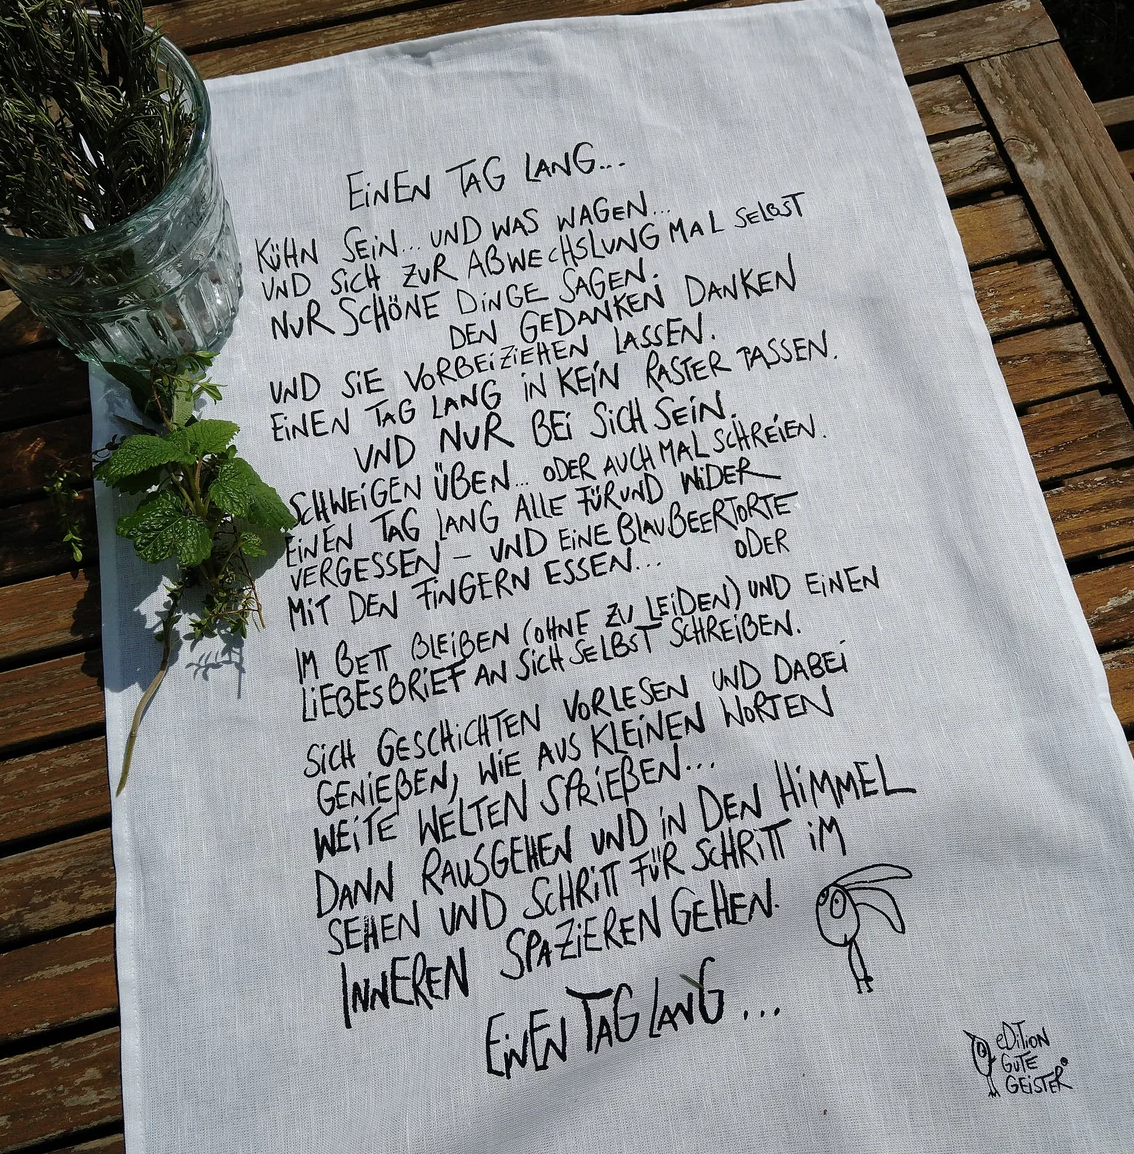 EiNEN TAG LANG...
KÜHN SEiN... UND WAS WAGEN...
UND SiCH ZUR ABWECHSLUNG MAL SELBST
NUR SCHÖNE DiNGE SAGEN.
DEN GEDANKEN DANKEN
UND SiE VORBEiZiEHEN LASSEN.
EiNEN TAG LANG iN KEiN RASTER PASSEN.
UND NUR BEi SiCH SEiN.
SCHWEiGEN ÜBEN... ODER AUCH MAL SCHREiEN.
EiNEN TAG LANG ALLE FÜR UND WiDER
VERGESSEN – UND EiNE BLAUBEERTORTE
MiT DEN FiNGERN ESSEN... ODER
IM BETT BLEiBEN (OHNE ZU LEiDEN) UND EiNEN
LiEBESBRiEF AN SiCH SELBST SCHREiBEN.
SiCH GESCHiCHTEN VORLESEN UND DABEi
GENiEßEN, WiE AUS KLEiNEN WORTEN
WEiTE WELTEN SPRiEßEN...
DANN RAUSGEHEN UND iN DEN HiMMEL
SEHEN UND SCHRiTT FÜR SCHRiTT iM
INNEREN SPAZiEREN GEHEN.
EiNEN TAG LANG...
eDiTiON
GUTE
GEiSTER®